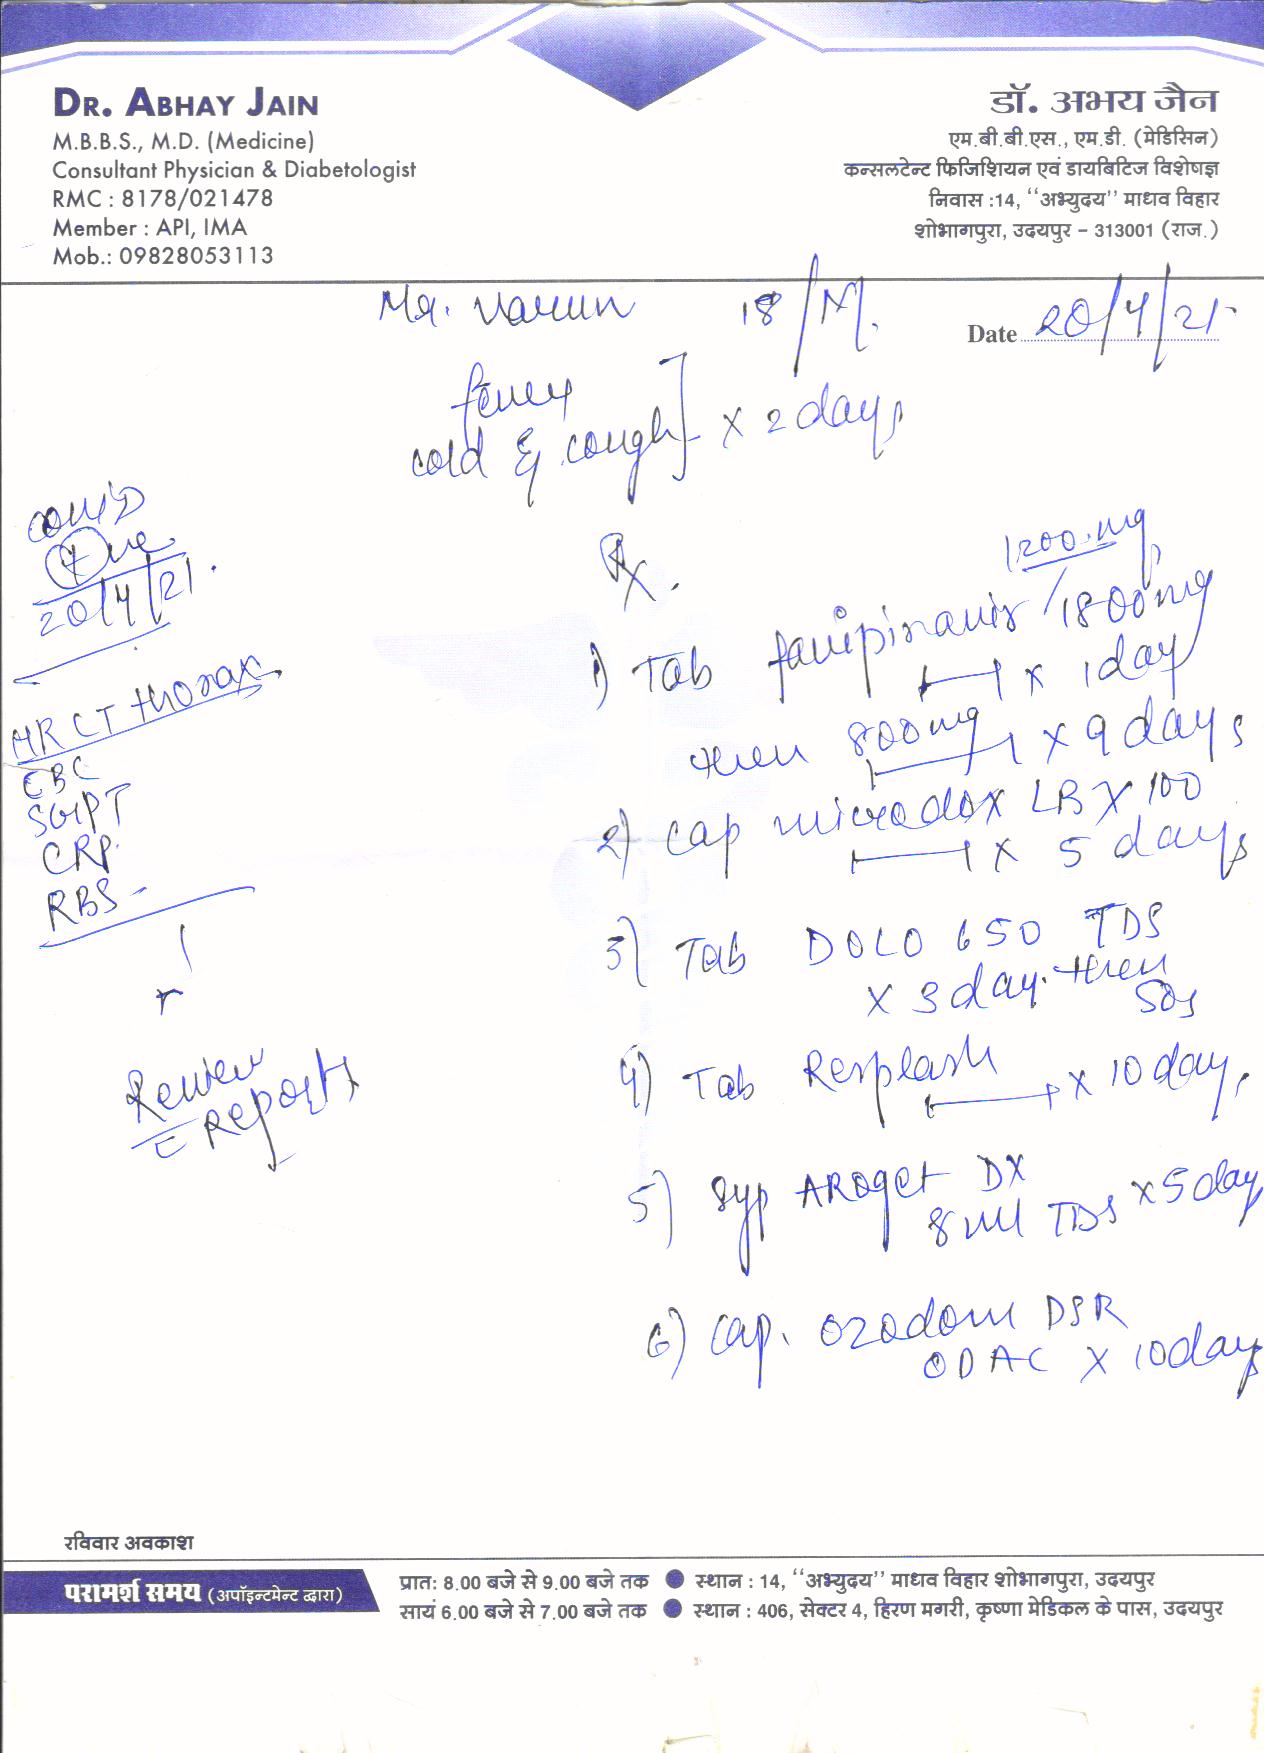 DR. ABHAY JAIN
M.B.B.S., M.D. (Medicine)
Consultant Physician & Diabetologist
RMC : 8178/021478
Member : API, IMA
Mob.: 09828053113
डॉ. अभय जैन
एम.बी.बी.एस., एम.डी. (मेडिसिन)
कन्सलटेन्ट फिजिशियन एवं डायबिटिज विशेषज्ञ
निवास :14, ‘‘अभ्युदय’’ माधव विहार
शोभागपुरा, उदयपुर – 313001 (राज.)
Mr. Varun 18/M.
Date 20/4/21
fever
cold & cough] x 2 days
covid
+ve
20/4/21.
HRCT thorax
CBC
SGPT
CRP.
RBS
Review
c reports
Rx.
1200 mg
1) Tab favipiravir / 1800 mg
x 1 day
then 800 mg x 9 days
2) Cap microdox LBX 100
x 5 days
3) Tab DOLO 650 TDS
x 3 day. then
SOS
4) Tab Resplash x 10 day,
5) Syp AROget DX
8 ml TDS x 5 day
6) Cap. ozodom DSR
OD AC x 10 day
रविवार अवकाश
परामर्श समय (अपॉइन्टमेन्ट द्वारा)
प्रात: 8.00 बजे से 9.00 बजे तक ● स्थान : 14, ‘‘अभ्युदय’’ माधव विहार शोभागपुरा, उदयपुर
सायं 6.00 बजे से 7.00 बजे तक ● स्थान : 406, सेक्टर 4, हिरण मगरी, कृष्णा मेडिकल के पास, उदयपुर